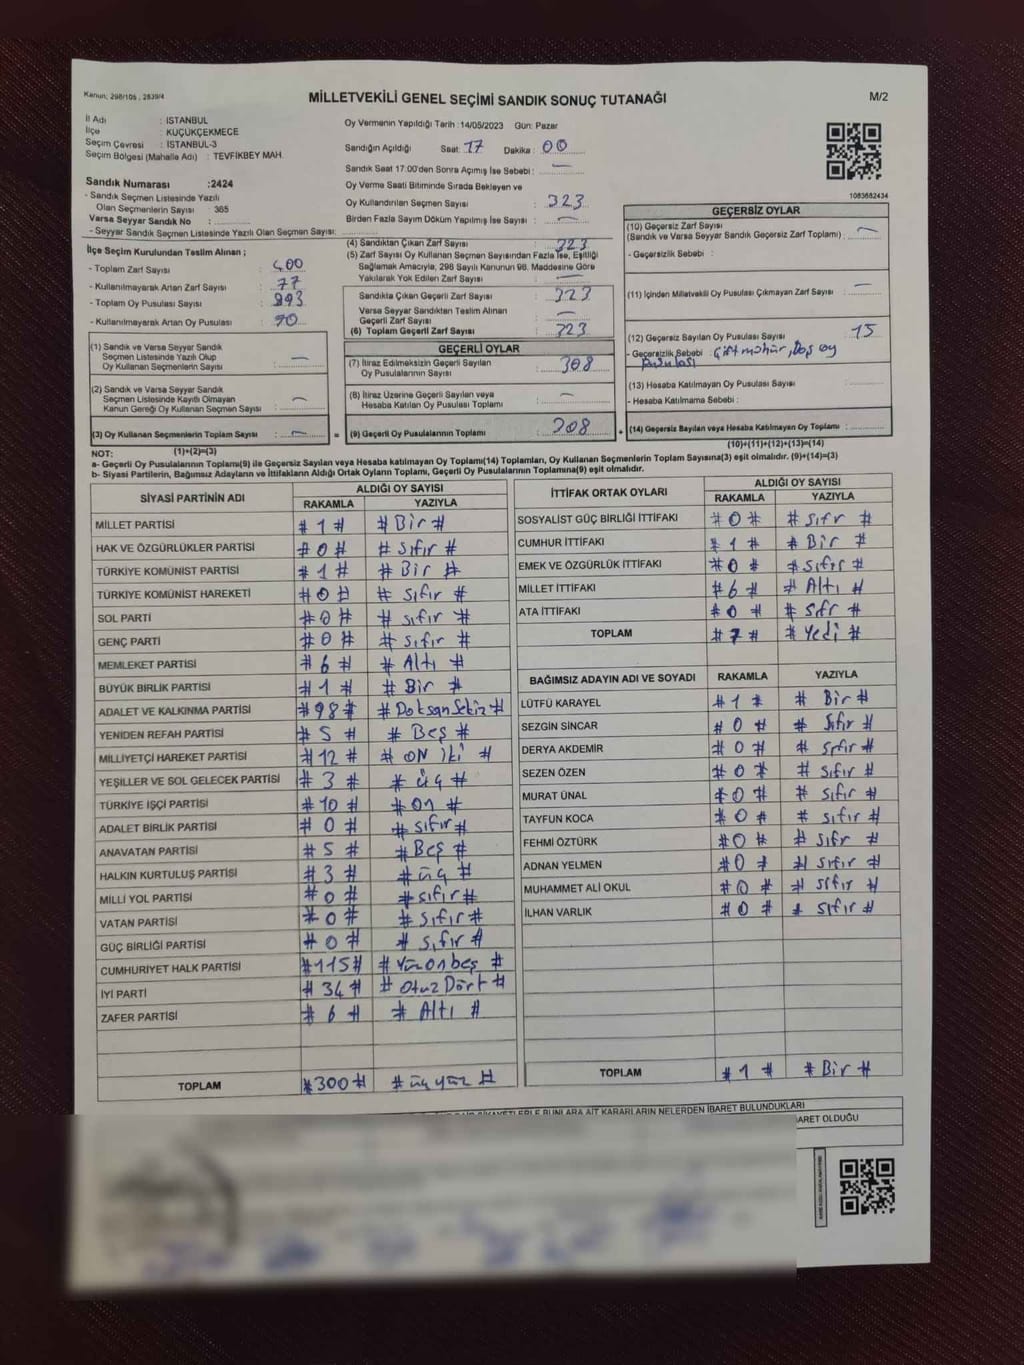 Kanun: 298/105 ; 2839/4
MİLLETVEKİLİ GENEL SEÇİMİ SANDIK SONUÇ TUTANAĞI
M/2
İl Adı : İSTANBUL
İlçe : KÜÇÜKÇEKMECE
Seçim Çevresi : İSTANBUL-3
Seçim Bölgesi (Mahalle Adı) : TEVFİKBEY MAH.
Sandık Numarası :2424
- Sandık Seçmen Listesinde Yazılı
Olan Seçmenlerin Sayısı : 365
Varsa Seyyar Sandık No :
- Seyyar Sandık Seçmen Listesinde Yazılı Olan Seçmen Sayısı:
İlçe Seçim Kurulundan Teslim Alınan ;
- Toplam Zarf Sayısı : 400
- Kullanılmayarak Artan Zarf Sayısı : 77
- Toplam Oy Pusulası Sayısı : 393
- Kullanılmayarak Artan Oy Pusulası : 70
(1) Sandık ve Varsa Seyyar Sandık
Seçmen Listesinde Yazılı Olup
Oy Kullanan Seçmenlerin Sayısı : —
(2) Sandık ve Varsa Seyyar Sandık
Seçmen Listesinde Kayıtlı Olmayan
Kanun Gereği Oy Kullanan Seçmen Sayısı : —
(3) Oy Kullanan Seçmenlerin Toplam Sayısı : —
Oy Vermenin Yapıldığı Tarih :14/05/2023 Gün: Pazar
Sandığın Açıldığı Saat: 17 Dakika : 00
Sandık Saat 17.00'den Sonra Açılmış İse Sebebi : —
Oy Verme Saati Bitiminde Sırada Bekleyen ve
Oy Kullandırılan Seçmen Sayısı : 323
Birden Fazla Sayım Döküm Yapılmış İse Sayısı : —
(4) Sandıktan Çıkan Zarf Sayısı : 323
(5) Zarf Sayısı Oy Kullanan Seçmen Sayısından Fazla İse, Eşitliği
Sağlamak Amacıyla, 298 Sayılı Kanunun 98. Maddesine Göre
Yakılarak Yok Edilen Zarf Sayısı : —
Sandıkta Çıkan Geçerli Zarf Sayısı : 323
Varsa Seyyar Sandıktan Teslim Alınan
Geçerli Zarf Sayısı :
(6) Toplam Geçerli Zarf Sayısı : 323
GEÇERLİ OYLAR
(7) İtiraz Edilmeksizin Geçerli Sayılan
Oy Pusulalarının Sayısı : 308
(8) İtiraz Üzerine Geçerli Sayılan veya
Hesaba Katılan Oy Pusulası Toplamı : —
= (9) Geçerli Oy Pusulalarının Toplamı : 308
1083682434
GEÇERSİZ OYLAR
(10) Geçersiz Zarf Sayısı
(Sandık ve Varsa Seyyar Sandık Geçersiz Zarf Toplamı) : —
- Geçersizlik Sebebi :
(11) İçinden Milletvekili Oy Pusulası Çıkmayan Zarf Sayısı : —
(12) Geçersiz Sayılan Oy Pusulası Sayısı : 15
- Geçersizlik Sebebi : Çift mühür, Boş oy
pusulası
(13) Hesaba Katılmayan Oy Pusulası Sayısı :
- Hesaba Katılmama Sebebi :
+ (14) Geçersiz Sayılan veya Hesaba Katılmayan Oy Toplamı :
NOT: (1)+(2)=(3) (10)+(11)+(12)+(13)=(14)
a- Geçerli Oy Pusulalarının Toplamı(9) ile Geçersiz Sayılan veya Hesaba katılmayan Oy Toplamı(14) Toplamları, Oy Kullanan Seçmenlerin Toplam Sayısına(3) eşit olmalıdır. (9)+(14)=(3)
b- Siyasi Partilerin, Bağımsız Adayların ve İttifakların Aldığı Ortak Oyların Toplamı, Geçerli Oy Pusulalarının Toplamına(9) eşit olmalıdır.
SİYASİ PARTİNİN ADI ALDIĞI OY SAYISI
RAKAMLA YAZIYLA
MİLLET PARTİSİ # 1 # # Bir #
HAK VE ÖZGÜRLÜKLER PARTİSİ # 0 # # sıfır #
TÜRKİYE KOMÜNİST PARTİSİ # 1 # # Bir #
TÜRKİYE KOMÜNİST HAREKETİ # 0 # # sıfır #
SOL PARTİ # 0 # # sıfır #
GENÇ PARTİ # 0 # # sıfır #
MEMLEKET PARTİSİ # 6 # # Altı #
BÜYÜK BİRLİK PARTİSİ # 1 # # Bir #
ADALET VE KALKINMA PARTİSİ # 98 # # Doksan Sekiz #
YENİDEN REFAH PARTİSİ # 5 # # Beş #
MİLLİYETÇİ HAREKET PARTİSİ # 12 # # ON iki #
YEŞİLLER VE SOL GELECEK PARTİSİ # 3 # # üç #
TÜRKİYE İŞÇİ PARTİSİ # 10 # # on #
ADALET BİRLİK PARTİSİ # 0 # # sıfır #
ANAVATAN PARTİSİ # 5 # # Beş #
HALKIN KURTULUŞ PARTİSİ # 3 # # üç #
MİLLİ YOL PARTİSİ # 0 # # sıfır #
VATAN PARTİSİ # 0 # # sıfır #
GÜÇ BİRLİĞİ PARTİSİ # 0 # # sıfır #
CUMHURİYET HALK PARTİSİ # 115 # # Yüzonbeş #
İYİ PARTİ # 34 # # Otuz Dört #
ZAFER PARTİSİ # 6 # # Altı #
TOPLAM # 300 # # üç yüz #
İTTİFAK ORTAK OYLARI ALDIĞI OY SAYISI
RAKAMLA YAZIYLA
SOSYALİST GÜÇ BİRLİĞİ İTTİFAKI # 0 # # Sıfır #
CUMHUR İTTİFAKI # 1 # # Bir #
EMEK VE ÖZGÜRLÜK İTTİFAKI # 0 # # sıfır #
MİLLET İTTİFAKI # 6 # # Altı #
ATA İTTİFAKI # 0 # # sıfır #
TOPLAM # 7 # # Yedi #
BAĞIMSIZ ADAYIN ADI VE SOYADI RAKAMLA YAZIYLA
LÜTFÜ KARAYEL # 1 # # Bir #
SEZGİN SİNCAR # 0 # # sıfır #
DERYA AKDEMİR # 0 # # sıfır #
SEZEN ÖZEN # 0 # # sıfır #
MURAT ÜNAL # 0 # # sıfır #
TAYFUN KOCA # 0 # # sıfır #
FEHMİ ÖZTÜRK # 0 # # sıfır #
ADNAN YELMEN # 0 # # sıfır #
MUHAMMET ALİ OKUL # 0 # # sıfır #
İLHAN VARLIK # 0 # # sıfır #
TOPLAM # 1 # # Bir #
ŞİKAYETLERLE BUNLARA AİT KARARLARIN NELERDEN İBARET BULUNDUKLARI
OLDUĞU